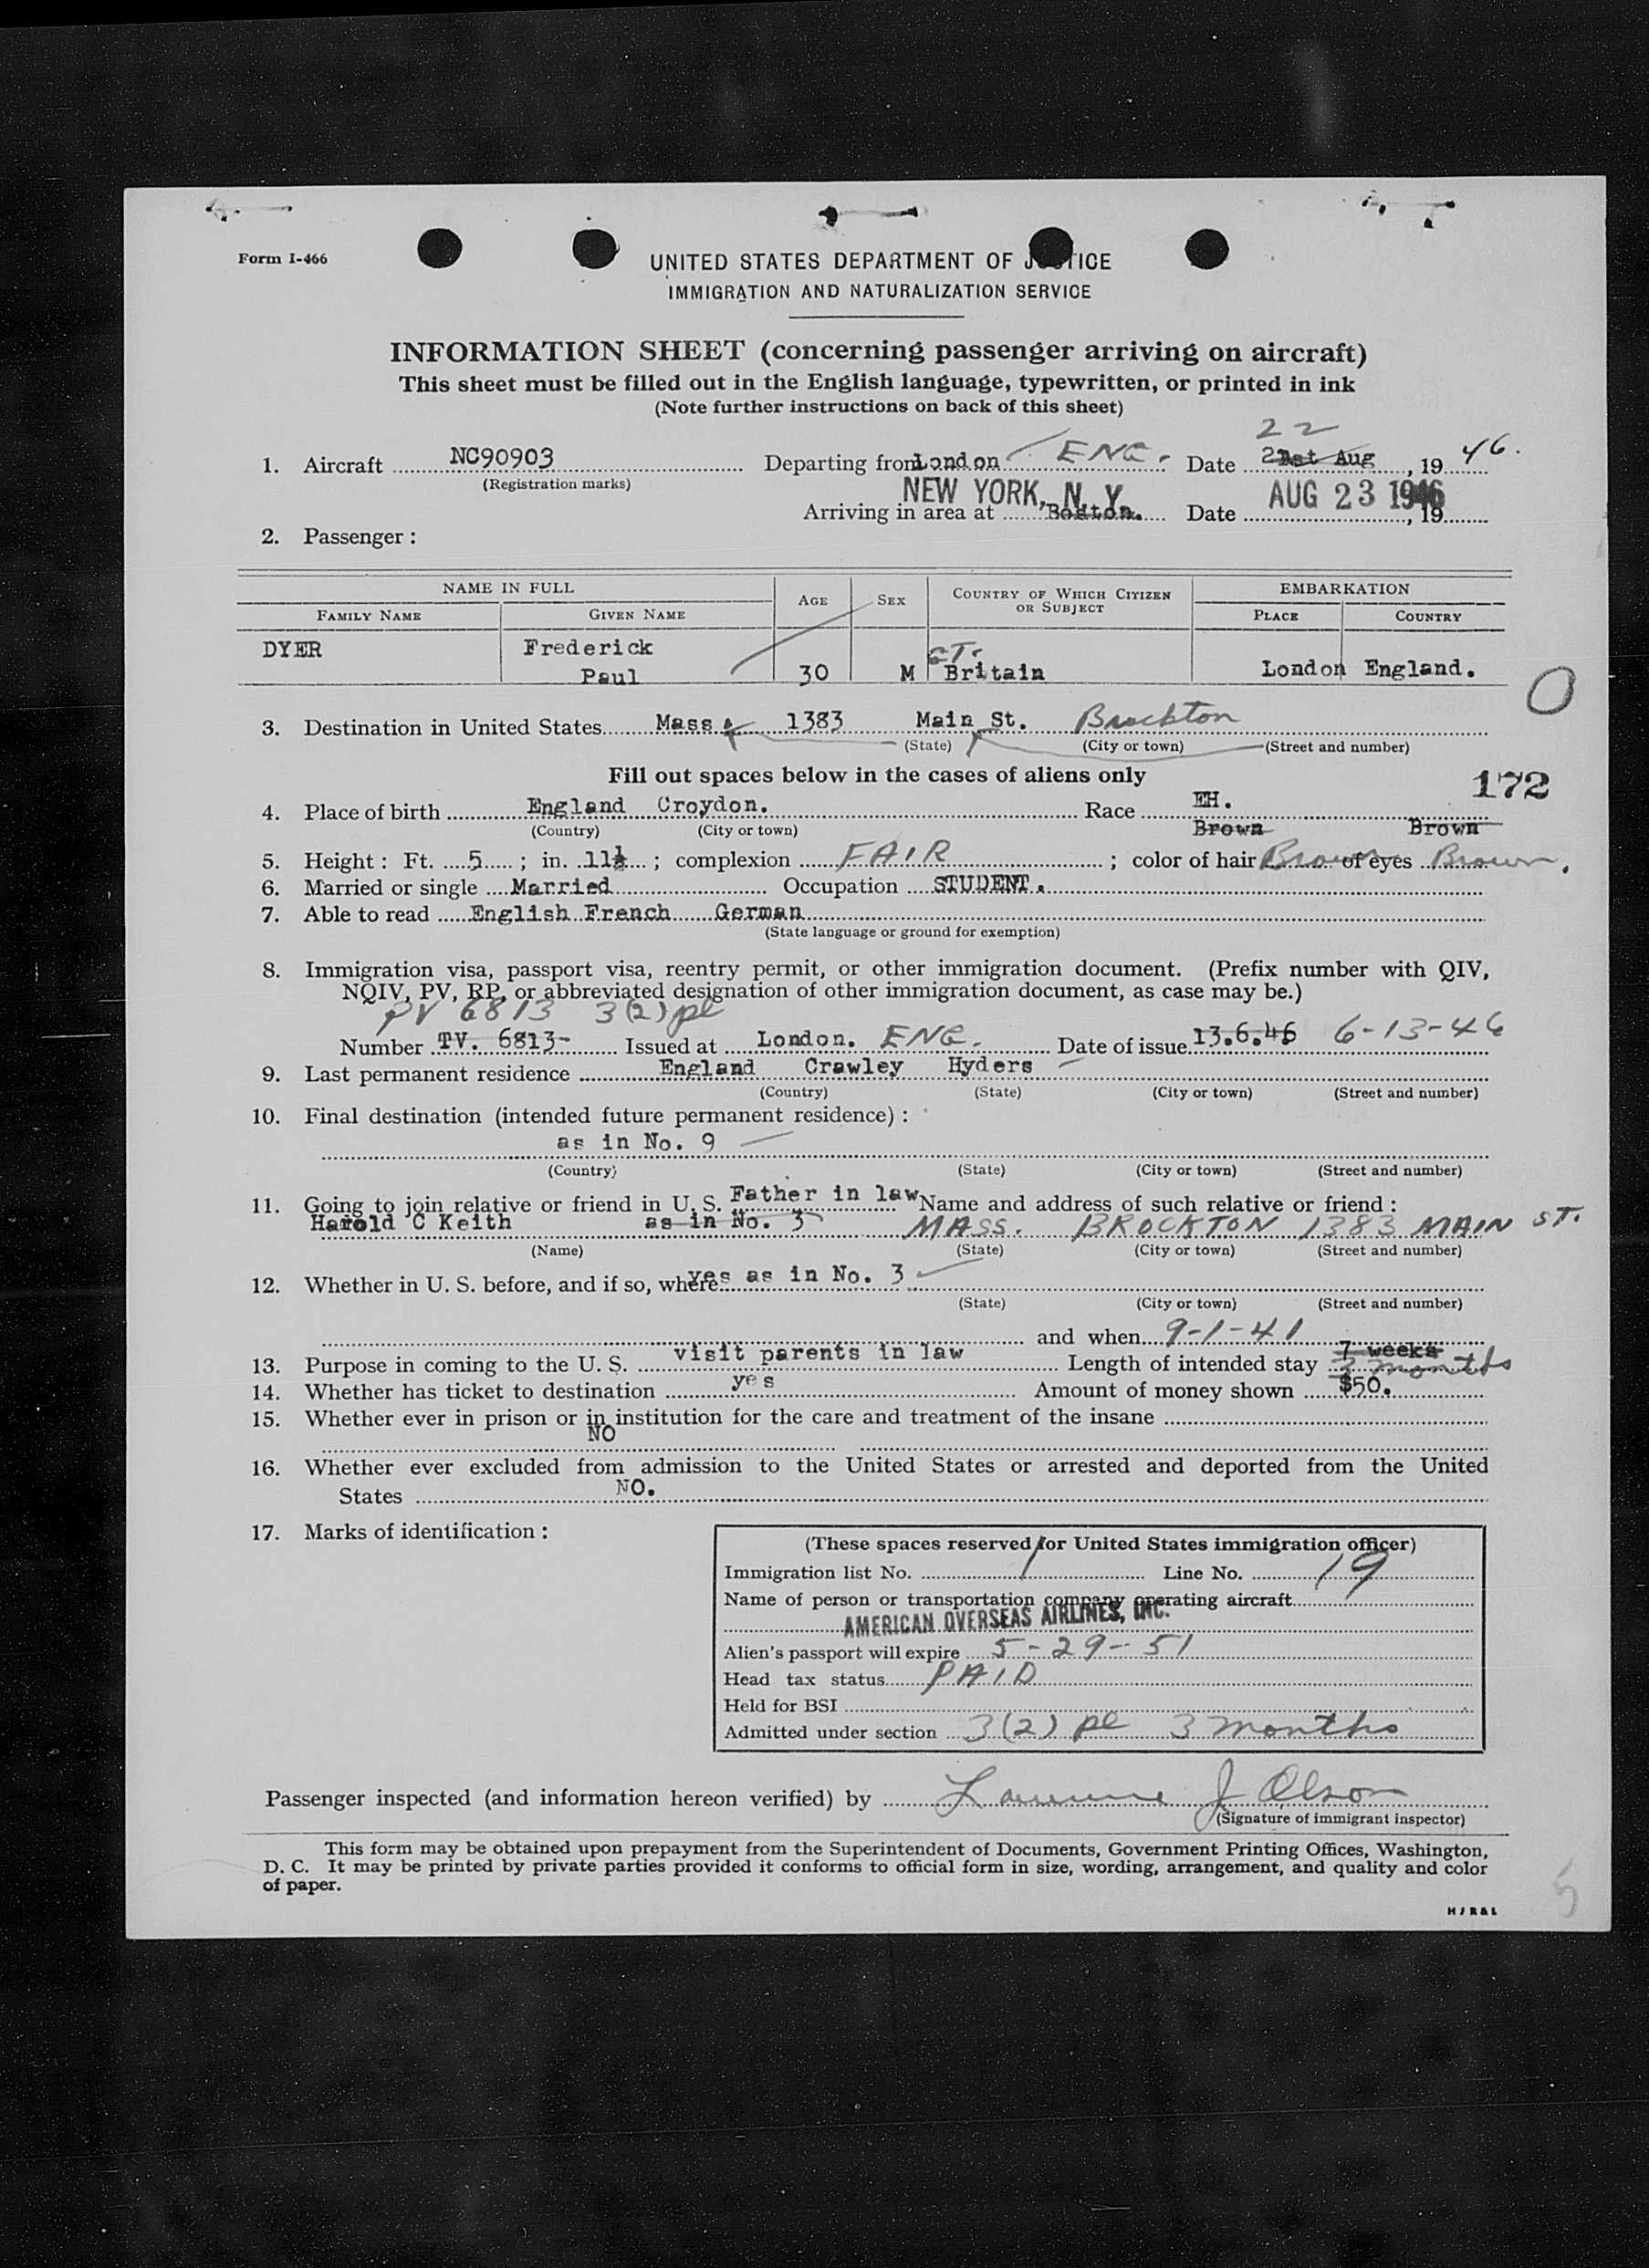 Form I-466
UNITED STATES DEPARTMENT OF JUSTICE
IMMIGRATION AND NATURALIZATION SERVICE
INFORMATION SHEET (concerning passenger arriving on aircraft)
This sheet must be filled out in the English language, typewritten, or printed in ink
(Note further instructions on back of this sheet)
22
1. Aircraft NC90903 Departing from London ENG. Date 21st Aug, 19 46.
(Registration marks)
NEW YORK, N. Y. AUG 23 1946
Arriving in area at Boston. Date , 19
2. Passenger:
NAME IN FULL AGE SEX COUNTRY OF WHICH CITIZEN OR SUBJECT EMBARKATION
FAMILY NAME GIVEN NAME PLACE COUNTRY
DYER Frederick
Paul 30 M GT. Britain London England.
3. Destination in United States Mass. 1383 Main St. Brockton
(State) (City or town) (Street and number)
Fill out spaces below in the cases of aliens only
172
4. Place of birth England Croydon. Race EH.
(Country) (City or town) Brown Brown
5. Height: Ft. 5; in. 11½; complexion FAIR; color of hair Brown of eyes Brown.
6. Married or single Married Occupation STUDENT.
7. Able to read English French German
(State language or ground for exemption)
8. Immigration visa, passport visa, reentry permit, or other immigration document. (Prefix number with QIV,
NQIV, PV, RP, or abbreviated designation of other immigration document, as case may be.)
PV 6813 3(2) pl
Number TV. 6813- Issued at London. ENG. Date of issue 13.6.46 6-13-46
9. Last permanent residence England Crawley Hyders
(Country) (State) (City or town) (Street and number)
10. Final destination (intended future permanent residence):
as in No. 9
(Country) (State) (City or town) (Street and number)
11. Going to join relative or friend in U. S. Father in law Name and address of such relative or friend:
Harold C Keith as in No. 3 MASS. BROCKTON 1383 MAIN ST.
(Name) (State) (City or town) (Street and number)
12. Whether in U. S. before, and if so, where yes as in No. 3
(State) (City or town) (Street and number)
and when 9-1-41
13. Purpose in coming to the U. S. visit parents in law Length of intended stay 7 weeks 3 months
14. Whether has ticket to destination yes Amount of money shown $50.
15. Whether ever in prison or in institution for the care and treatment of the insane
NO
16. Whether ever excluded from admission to the United States or arrested and deported from the United
States NO.
17. Marks of identification:
(These spaces reserved for United States immigration officer)
Immigration list No. 1 Line No. 19
Name of person or transportation company operating aircraft
AMERICAN OVERSEAS AIRLINES, INC.
Alien's passport will expire 5-29-51
Head tax status PAID
Held for BSI
Admitted under section 3(2) pl 3 months
Passenger inspected (and information hereon verified) by Lawrence J Olson
(Signature of immigrant inspector)
This form may be obtained upon prepayment from the Superintendent of Documents, Government Printing Offices, Washington,
D. C. It may be printed by private parties provided it conforms to official form in size, wording, arrangement, and quality and color
of paper.
5
HJR&L